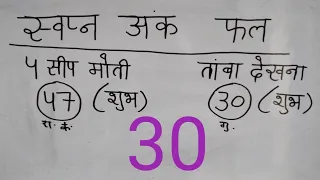 स्वप्न अंक फल
५ सीप मोती तांबा देखना
४७ (शुभ) 30 (शुभ)
रा. के. गु.
30